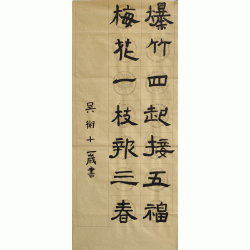 爆竹四起接五福
梅花一枝報三春
吴衛十一歲書